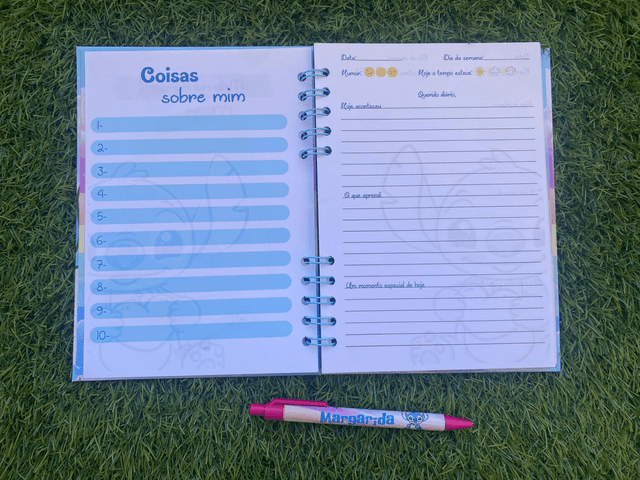 Coisas
sobre mim
1-
2-
3-
4-
5-
6-
7-
8-
9-
10-
Data: Dia da semana:
Humor: Hoje o tempo estava:
Querido diário,
Hoje aconteceu
O que aprendi
Um momento especial de hoje
Margarida